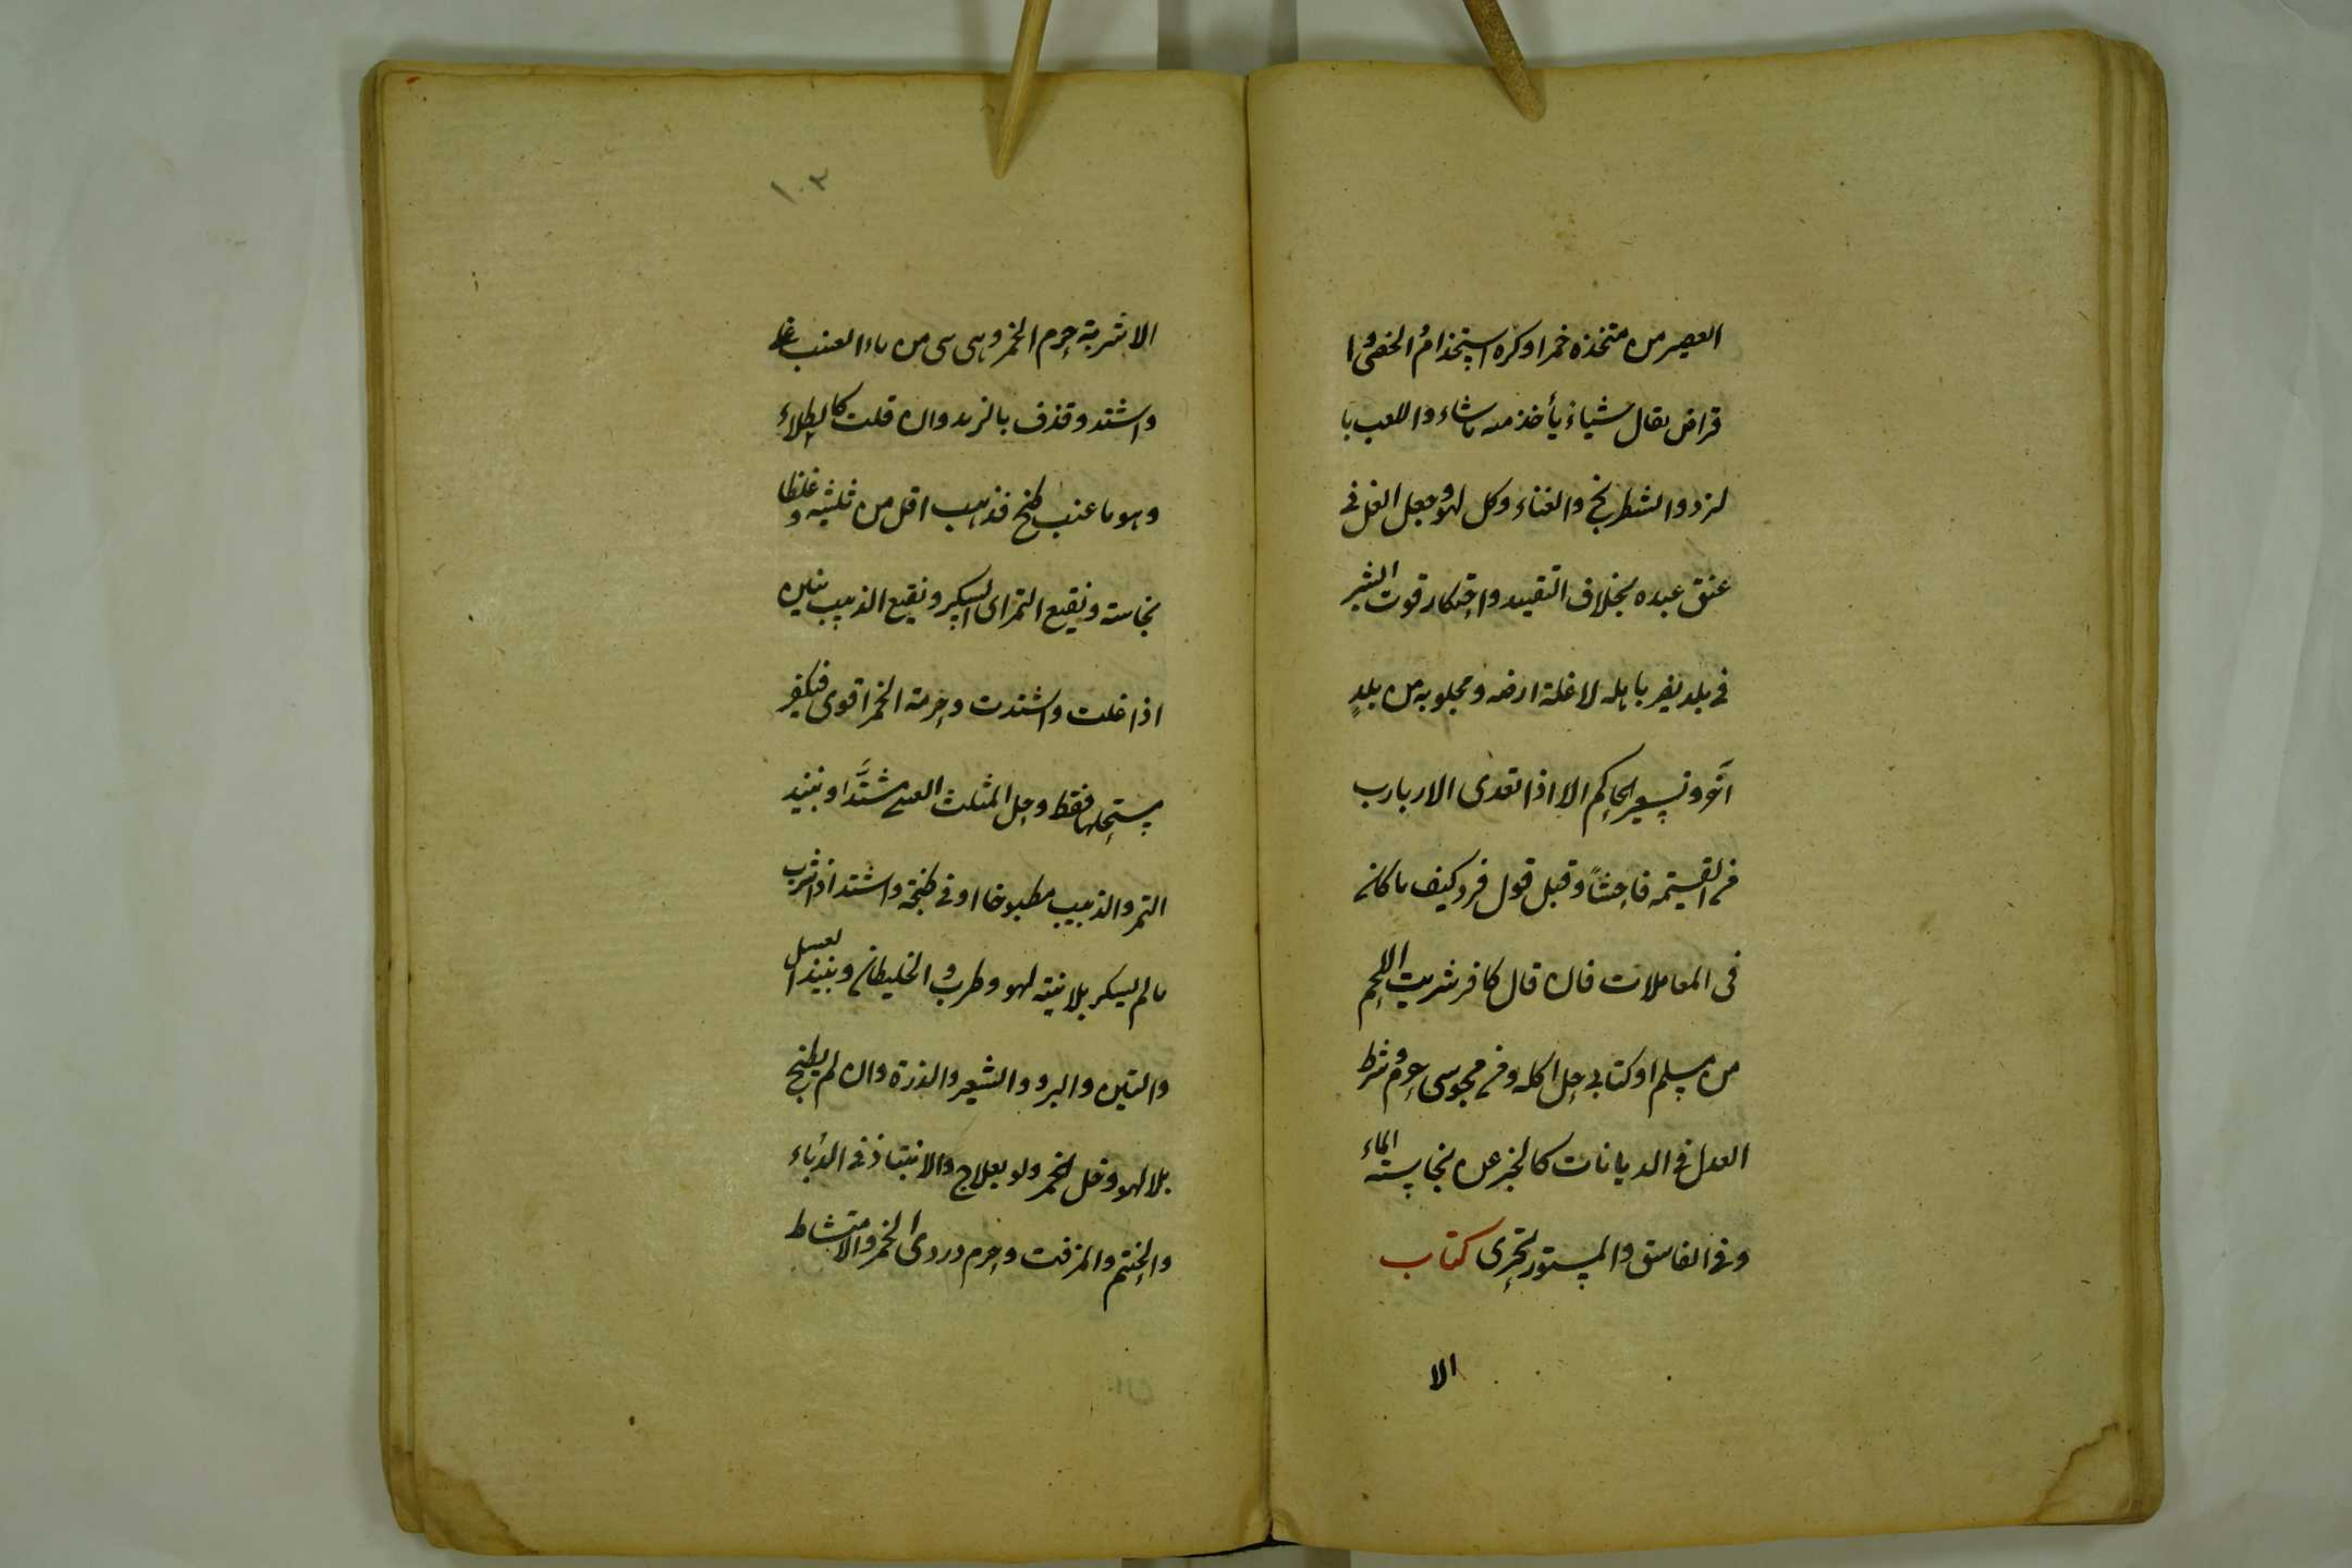 العصير من متخذه خمرا وكره استخدام الخصي وا
قراض بقال شياء يأخذ منه ما شاء واللعب با
لنرد والشطرنج والغناء وكل لهو وجعل الغل في
عنق عبده بخلاف التقييد واحتكار قوت البشر
في بلد يضر باهله لا غلة ارضه ومجلوبه من بلدٍ
آخر وتسعير الحاكم الا اذا تعدى الاربارب
في القيمة فاحشاً وقبل قول فرد كيف ما كان
في المعاملات فان قال كافر شريت اللحم
من مسلم او كتابي حل اكله وفي مجوسي حرم وشرط
العدل في الديانات كالخبر عن نجاسته الماء
وفي الفاسق والمستور تحرى كتاب
الا
١٠٣
الاشربة حرم الخمر وهي ني من ماء العنب غلى
واشتد وقذف بالزبد وان قلت كالطلاء
وهو ما عنب طبخ فذهب اقل من ثلثيه وغلظا
نجاسة ونقيع التمر اى السكر ونقيع الذبيب نيين
اذا غلت واشتدت وحرمة الخمر اقوى فيكفر
مستحلها فقط وحل المثلث العنبي مشتدَّا ونبيذ
التمر والذبيب مطبوخا ادنى طبخة واشتد اذا شرب
ما لم يسكر بلا نية لهو وطرب و الخليطان ونبيذ العسل
والتين والبر والشعير والذرة وان لم يطبخ
بلا لهو وخل الخمر ولو بعلاج والانتباذ في الدباء
والحنتم والمزفت وحرم دردى الخمر والامتشاط